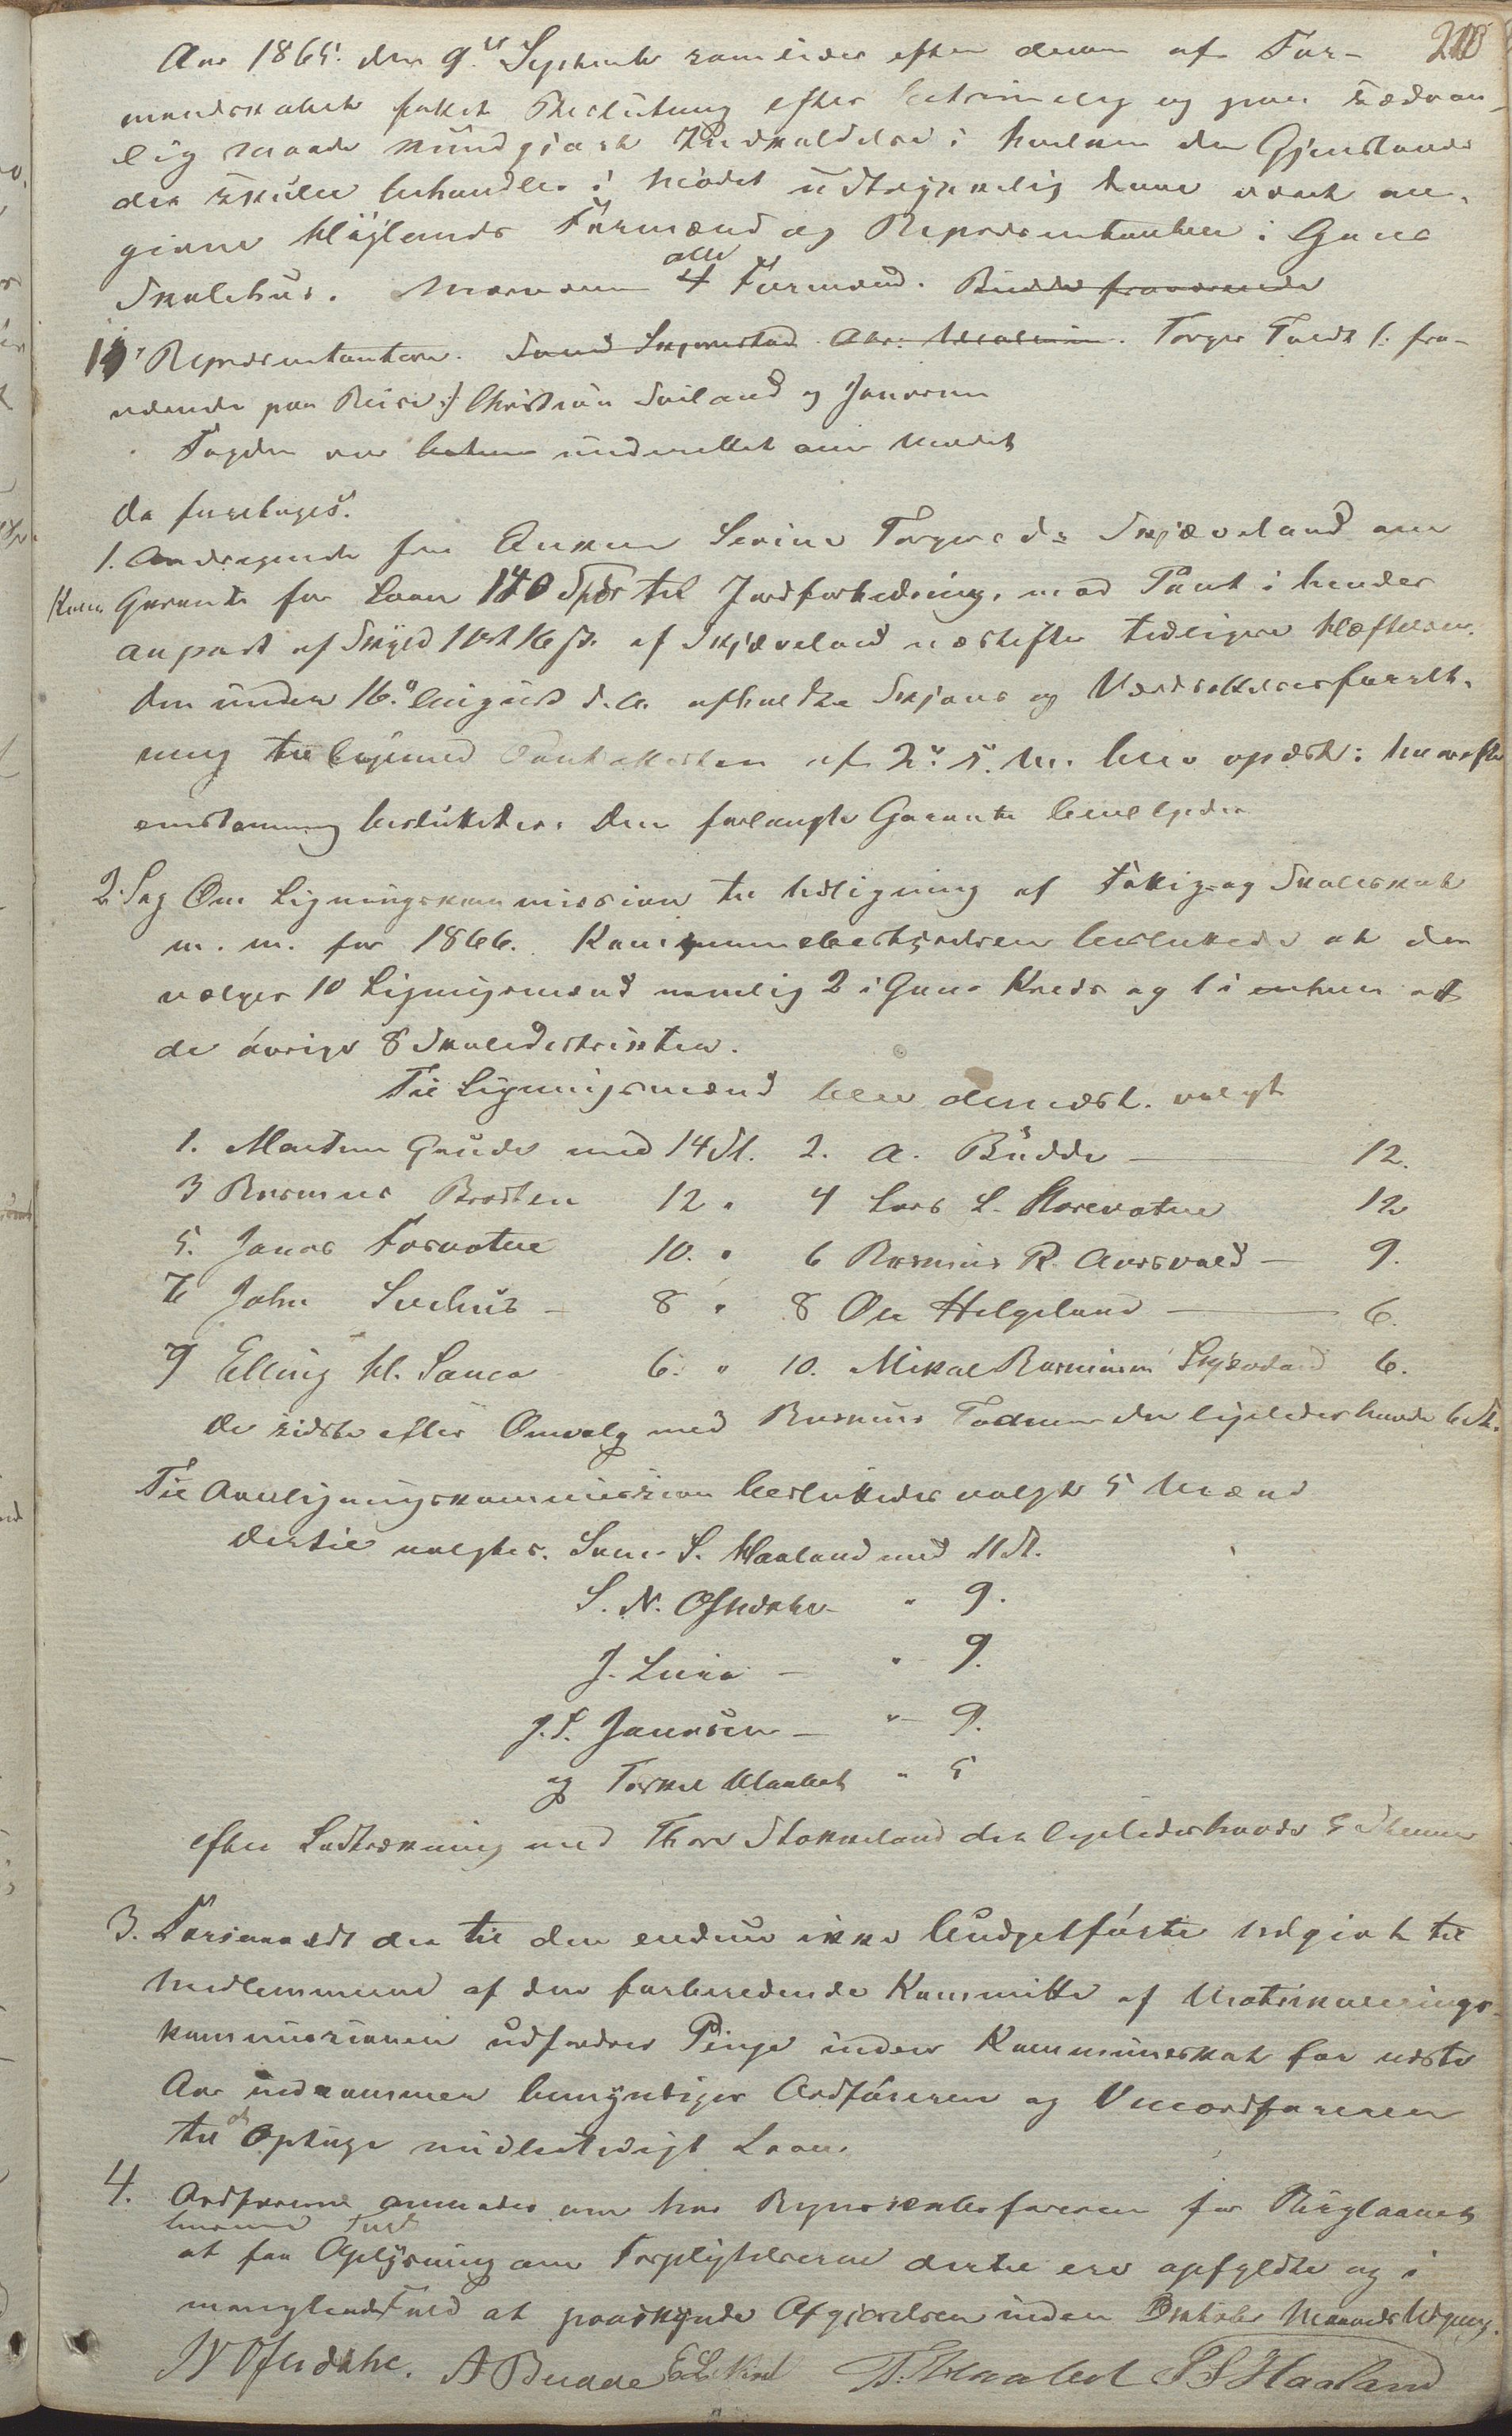 210
Aar 1865. den 9de September samledes efter derom af For-
mandskabet fattet Beslutning efter betimelig og paa sædvan-
lig Maade kundgjort Indkaldelse i hvilken de Gjenstande
der skulde behandles i Mødet udtrykkelig have været an-
givne Höÿlands Formænd og Repræsentanter i Gans
Skolehus. Nærværende alle 4 Formænd. Budde fraværende
10 Repræsentanter. Svend Skjærestad Torger Tvedt /: fra-
værende paa Reise :/ Christian Sviland og Jonassen
Fogden var underrettet om Mødet
Da foretoges.
1. Andragende fra Enken Serine Torgersdr Skjæveland om
Kom. Garanti for Laan 140 Spdr til Jordforbedring, mod Pant i hendes
anpart af Skyld 1 Ort 16 ß. af Skjæveland næstefter tidligere Hæftelser.
Den under 16de August d.A. afholdte Skjøns og Værdsættelsesforret-
ning tilligemed Pantattesten af 2den s. M. blev oplæst: hvorefter
enstemmig besluttedes: Den forlangte Garanti bevilgedes
2. Sag Om Ligningskommission til Udligning af Fattig- og Skoleskat
m. m. for 1866. Kommunebestyrelsen besluttede at der
vælges 10 Ligningsmænd nemlig 2 i Gans Kreds og 1 i enhver af
de övrige 8 Skoledistrikter.
Til Ligningsmænd blev dernæst valgt
1. Morten Gaude med 14 St. 2. A. Budde — 12.
3 Rasmus Brosten 12 " 4 Lars L. Storevatne 12
5. Jonas Fosvatne 10. " 6 Rasmus R. Aarsvold — 9.
7 John Svehus — 8 " 8 Ole Helgeland — 6.
9 Elling H. Sauca 6. " 10. Mikal Rasmussen Skjæveland 6.
de sidste efter Omvalg med Rasmus Todnem der ligeledes havde 6 St.
Til Overligningskommission besluttedes valgt 5 Mænd
dertil valgtes. Svend S. Haaland med 11 St.
S. N. Ofstdahl " 9.
J. Lura — " 9.
J. S. Jonassen — " 9.
og Torkel Maaland " 5
efter Lodtrækning med Thore Stokkeland der ligeledes havde 5 Stemmer
3. Forsaavidt der til den endnu ikke budgetförte Udgivt til
Medlemmerne af den forberedende Kommitte af Matrikulerings-
kommissionen udfordres Penge inden Kommuneskat for næste
Aar indkommer bemyndiges Ordföreren og Viceordføreren
til at Optage midlertidigt Laan.
4. Ordføreren anmodes om hos Repræsentanten for Byglaanet
at faa Oplysning om Forpligtelserne dertil ere opfyldte og i
manglende Fald at paaskynde Afgjørelsen inden Oktober Maaneds Udgang.
N Ofstdahl. A Budde T. Maaland S S Haaland